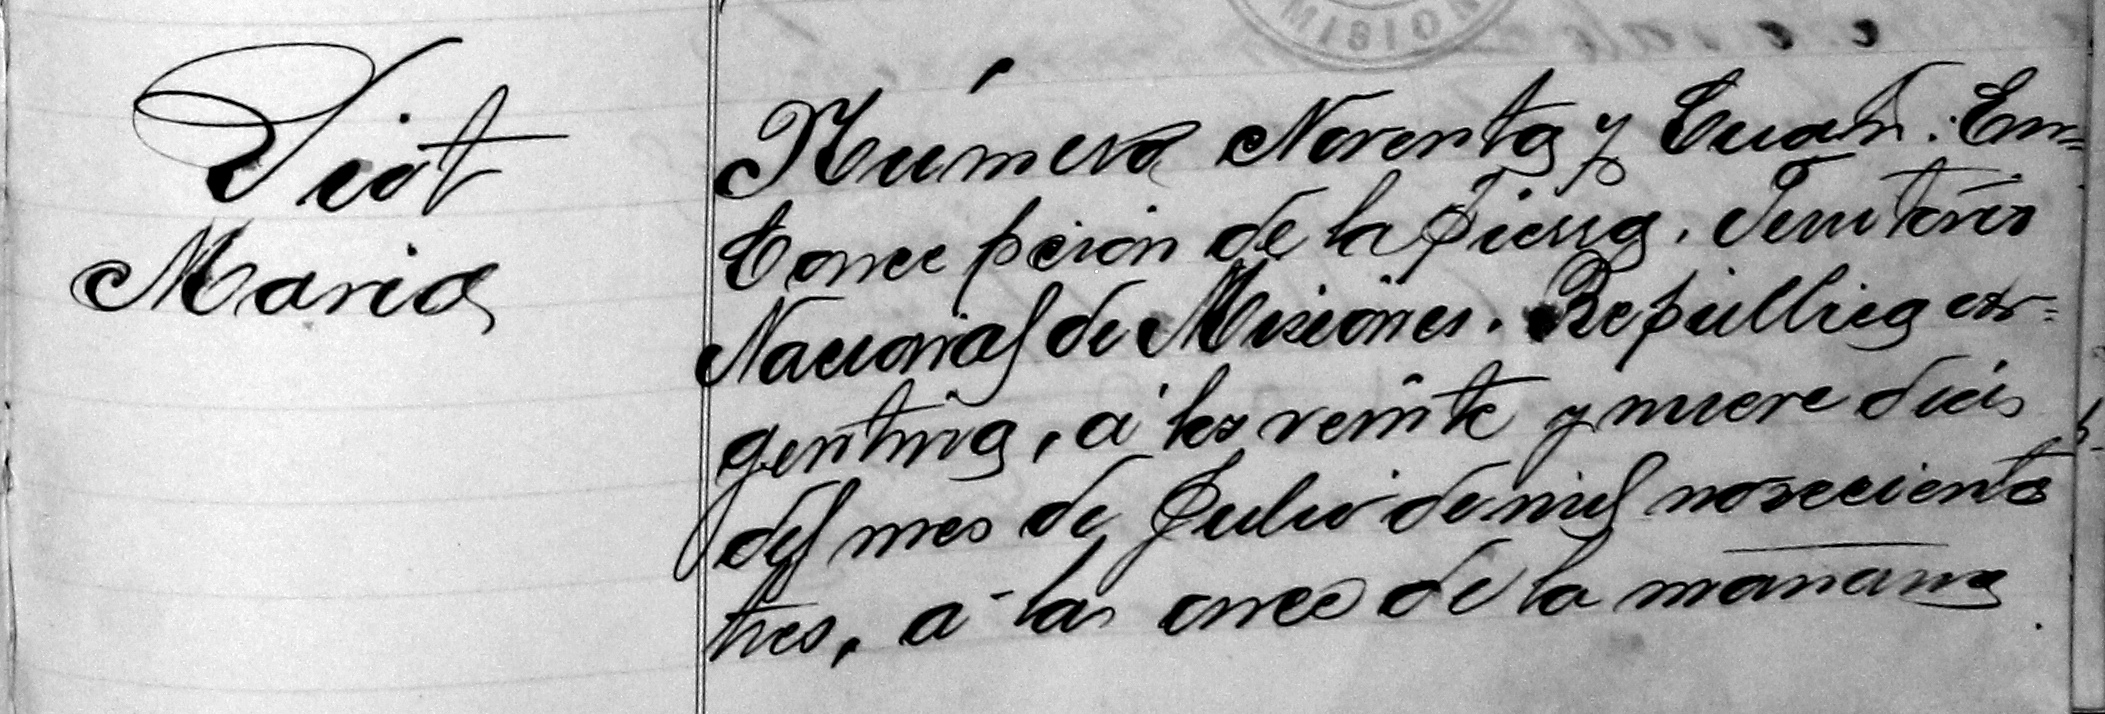 MISION
Viot
Maria
Número Noventa y Cuatr. En=
Concepcion de la Sierra, Territorio
Nacional de Misiones. República Ar=
gentina, á los veinte y nueve dias
del mes de Julio de mil novecientos
tres, á las once de la mañana